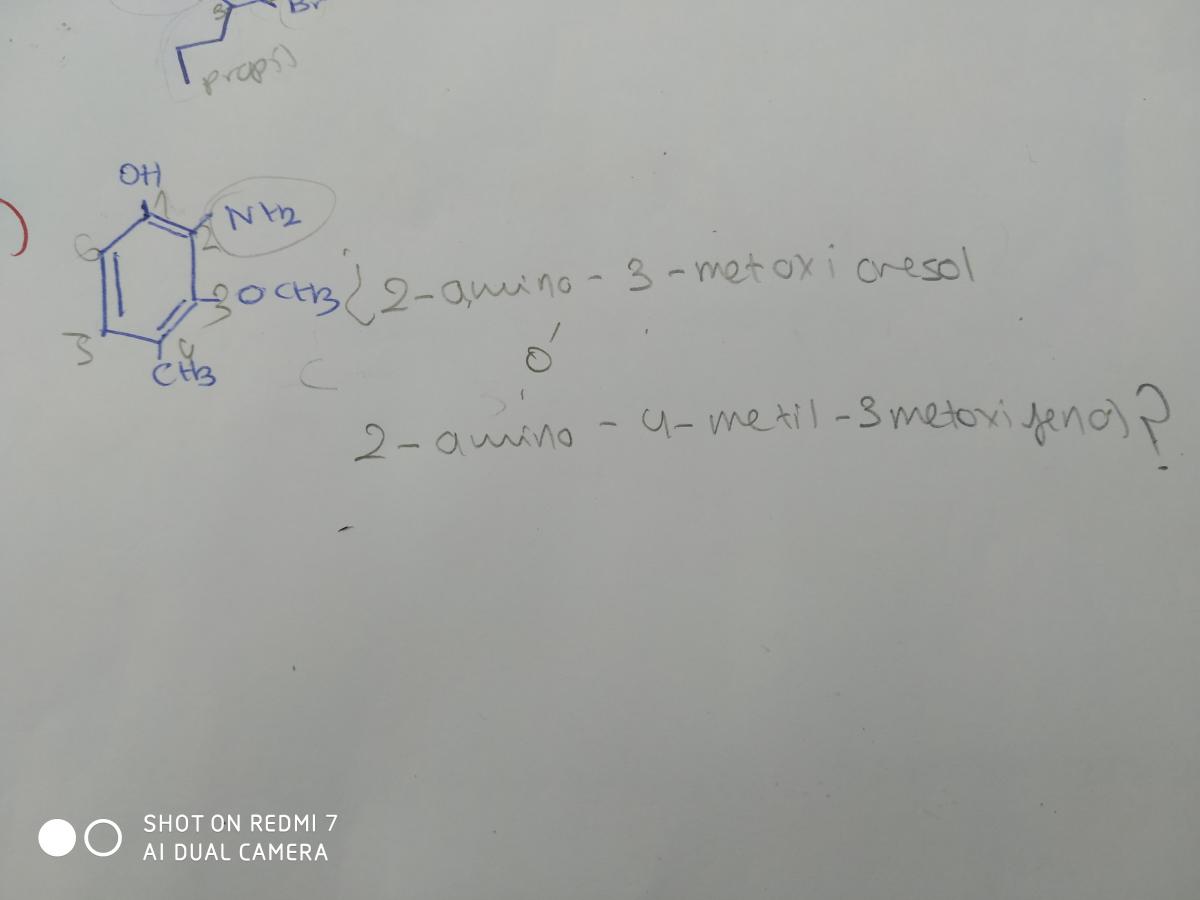 3 Br
propil
OH
1
6 2 NH2
3 OCH3 { 2-amino-3-metoxi cresol
5 4
CH3
Ó
2-amino-4-metil-3metoxi fenol?
SHOT ON REDMI 7
AI DUAL CAMERA